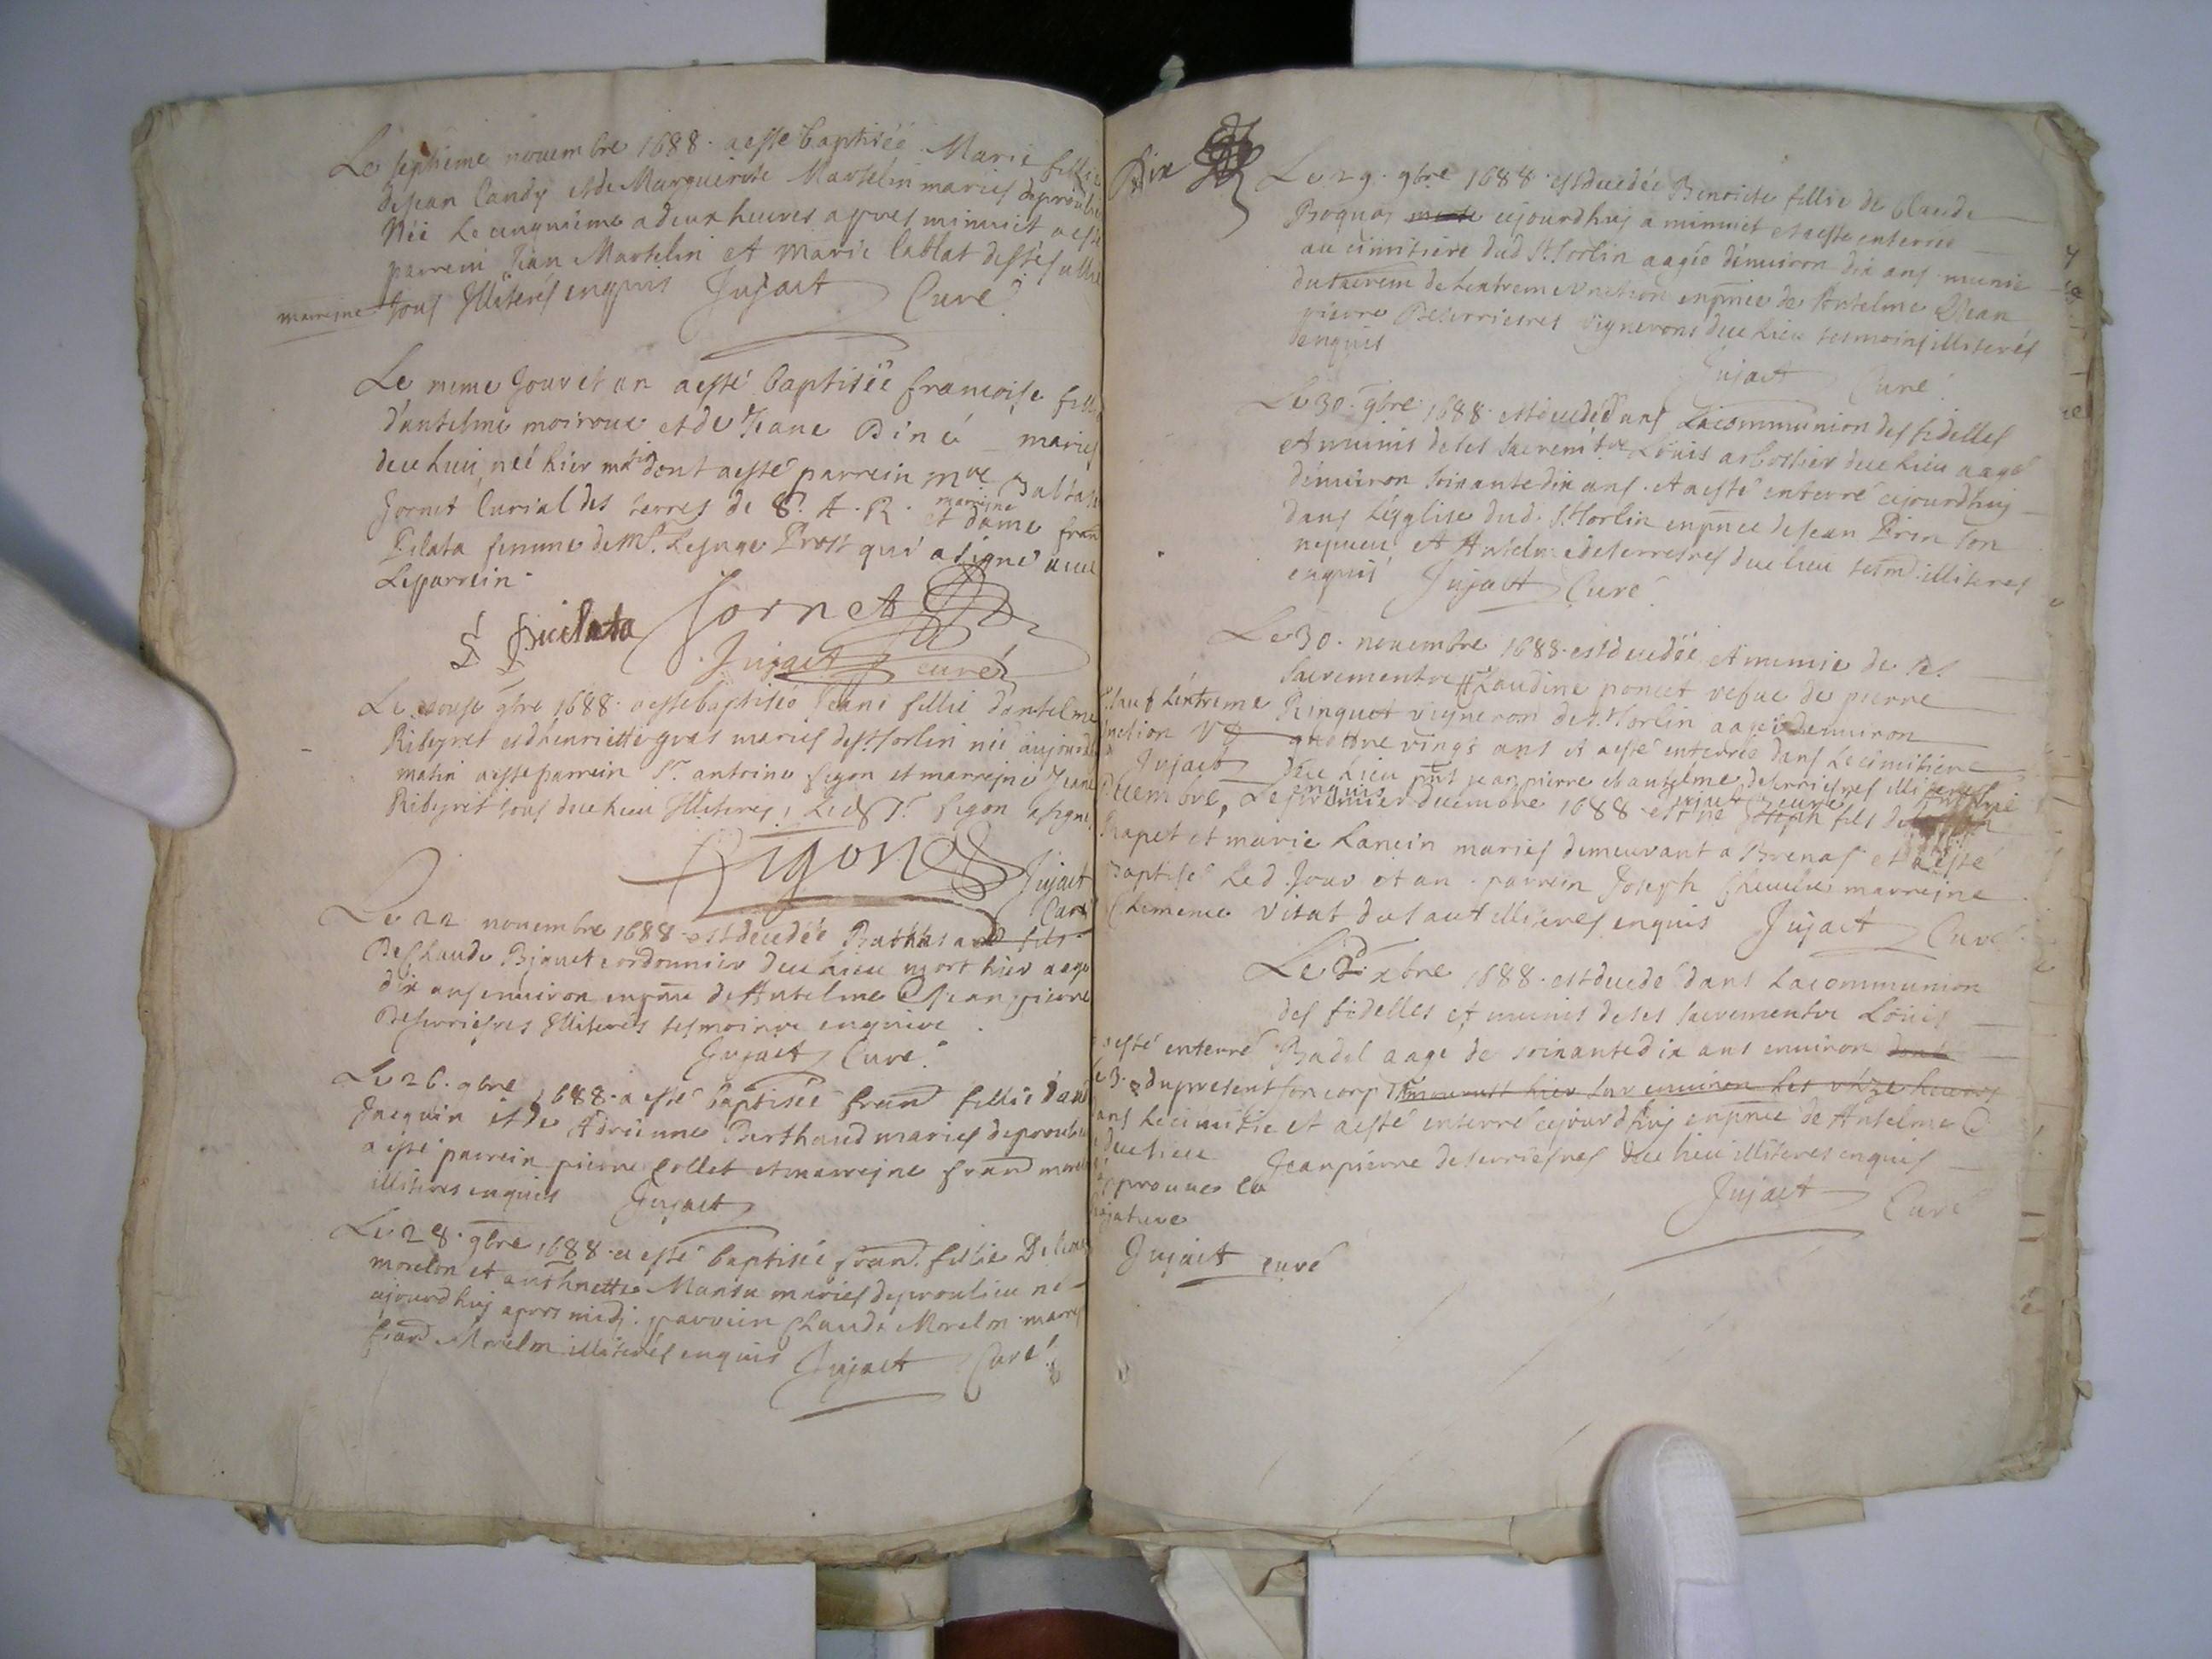 Le septieme novembre 1688 a esté baptisée Marie fillie
de Jean Candy et de Marguerite Martelin mariés de proulieu
Née le cinquieme a deux heures apres minuict a esté
parrein Jean Martelin et Marie Lablat
marreine tous Illiterés enquis Jujact Curé
Le meme Jour et an a esté baptisée francoise fillie
d'antelme moiroux et de Jeane Biné mariés
du lieu née hier matin dont a esté parrein mre Baltasar
Jornet Curial des terres de S. A. R. et marreine dame fran
Pilata femme de mr. Le Juge Prost qui a signé avec
Le parrein
f pucilata Jornet
Jujact curé
Le 9bre 1688 a esté baptisée Jeane fillie d'antelme
Ribeyret et d'henriette gras mariés de St Sorlin née aujourd
matin a esté parrein Sr. antoine figon et marreine Jeane
Ribeyret tous du lieu Illiterés, Led Sr. figon a signé
figon Jujact
Curé
Le 22 novembre 1688 est decedée Balthasard fils
De Claude cordonnier du lieu mort hier aage
dix ans environ en pnce de Antelme & Jean pierre
Deserriesres Illiterés tesmoins enquis
Jujact Curé
Le 26. 9bre 1688 a esté baptisée fran fillie
Jacquin et de Adrienne Berthaud mariés de proulieu
a esté parrein pierre Collet et marreine fran
illiteres enquis Jujact
Le 28. 9bre 1688 a esté baptisée fran. fillie De
morelon et anthnette Mansu mariés de proulieu né
ajourd huj apres midj. parrein Claude Morelon marre
fran Morelon illiterés enquis Jujact Curé
Dix
Le 29. 9bre 1688 est decedée Benoite fillie de Claude
cejourdhuj a minuict et a esté enterrée
au cimitiere dud St Sorlin aagée d'environ dix ans munie
du sacrem de Lextreme unction en pnce de Antelme & Jean
pierre Deserriesres vignerons du lieu tesmoins illiterés
enquis
Jujact Curé
Le 30. 9bre 1688 est decedé dans La communion des fidelles
et munis de ses sacremtz Louis du lieu aagé
d'environ soixante dix ans. et a esté enterré cejourdhuj
dans Léglise dud. St Sorlin en pnce de Jean Perin son
nepveu et Antelme deserriesres du lieu tesm illiteres
enquis Jujact Curé
Le 30. novembre 1688 est decedée et munie de ses
sacrementz Claudine poncet vefue de pierre
Sauf Lextreme Rinquet vigneron de St Sorlin aagée denviron
nction quattre vings ans et a esté enterrée dans Le cimitiere
Jujact du lieu pnt jean pierre et antelme deserriesres illiterés
enquis Jujact Curé
decembre, Le premier decembre 1688 est né Joseph fils de
Rapet et marie Lancin mariés demeurant a Brenas et a esté
Baptisé Led. Jour et an. parrein Joseph marreine
Clemence Vitat dusaut illiterés enquis Jujact Curé
Le 2. xbre 1688 est decedé dans La communion
des fidelles et munis de ses sacrementz Louis
a esté enterré Badel aage de soixante dix ans environ
du present son corp mourust hier sur environ les unze heures
ans Le cimitie et a esté enterré cejourdhuj en pnce de Antelme &
du lieu Jean pierre deserriesres du lieu illiteres enquis
approuve la Jujact Curé
rajature
Jujact curé